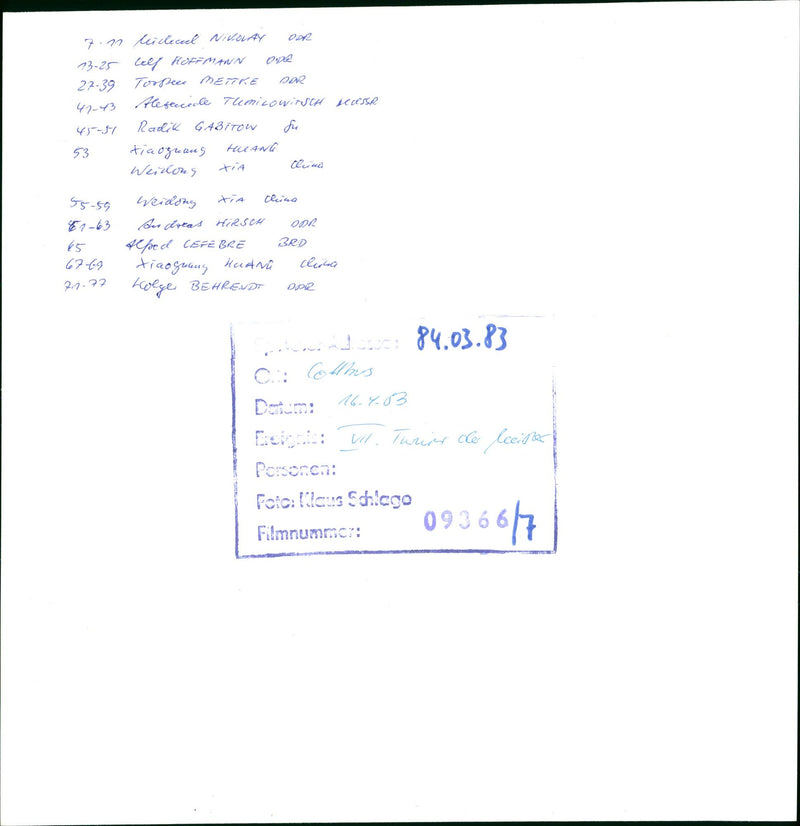 7-11 Michael NIKOLAY DDR
13-25 Ulf HOFFMANN DDR
27-39 Torsten METTKE DDR
41-43 TUMILOWITSCH UdSSR
45-51 Radik GABITOW SU
53 Xiaoguang HUANG
Weidong XIA China
55-59 Weidong XIA China
61-63 Andreas HIRSCH DDR
65 Alfred LEFEBRE BRD
67-69 Xiaoguang HUANG China
71-77 Holger BEHRENDT DDR
84.03.83
Ort: Cottbus
Datum: 16.4.83
Ereignis: VII. Turnier der Meister
Personen:
Foto: Klaus Schlage
Filmnummer: 09366/7